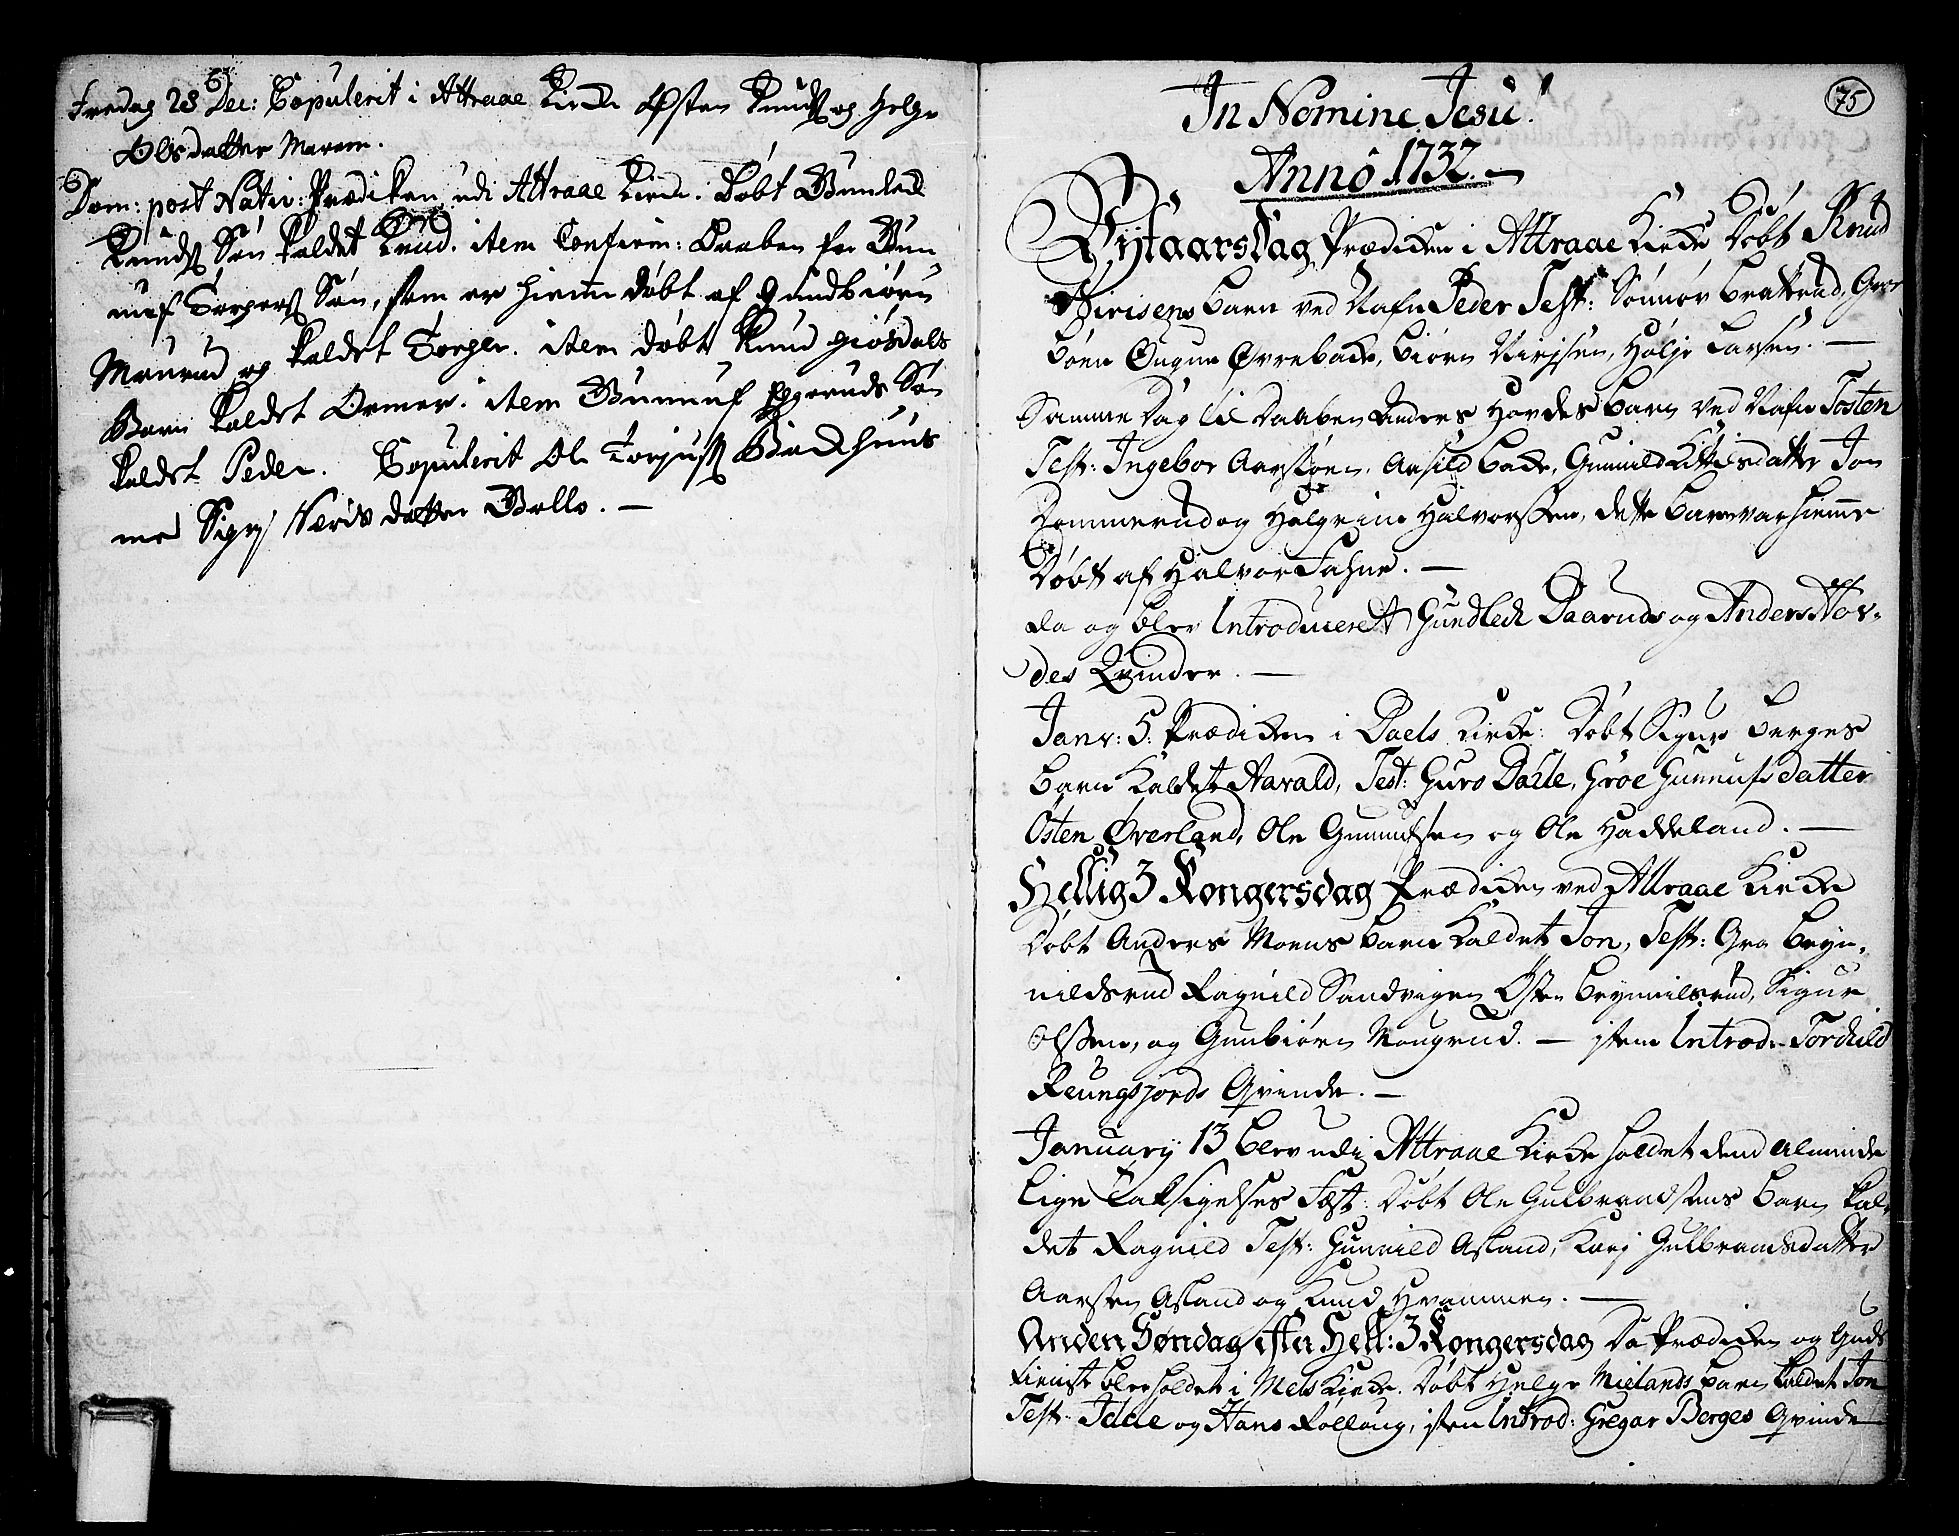 Fredag 28 Dec: Copulerit i Attraae Kirke Østen Knuds og Helge
Olsdatter Marem.
Dom: post Nativ: Prædiken udi Attraae Kirke. Døbt Gunleck
Knuds Søn kaldet Knud. item Confirm: Daaben for Gun
nuf Torgers Søn, som er hiemme døbt af Gundbiørn
Maurud og kaldet Torger. item døbt Knud Giøsdals
Barn kaldet Ormer. item Gunnuf Søn
kaldet Peder. Copulerit Ole Torjuss Birkhuus
med Sigri datter Bolle. —
75
In Nomine Jesu!
Anno 1732. —
Nytaarsdag Prædiken i Attraae Kirke Døbt Knud
Nirisens Barn ved Nafn Peder Test: Sønnøv Brattrud, Gro
Bøen Øvrebacke, Biørn Nirisen, Holje Larsen. —
Samme Dag til Daaben Anders Hovdes Barn ved Nafn Tosten
Test: Ingebor Aassioen, Aasild Backe, Gunnild Kittilsdatter Jon
Rommerud og Halgrim Halvorssen, dette Barn var hiemme
Døbt af Halvor Fahne. —
Da og blev Introduceret Gundleck Daaruds og Anders Hov-
des Qvinder. —
Janv: 5. Prædiken i Daels Kirke: Døbt Sigur Berges
Barn kaldet Aavald, Test: Guro Daale, Groe Gunnufsdatter
Østen Øverland, Ole Gunnufsen og Ole Haddeland. —
Hellig 3 Kongersdag Prædiken ved Attraae Kirke
Døbt Anders Moens Barn kaldet Jon, Test: Gro Bryn-
nildsrud Ragnild Sandvigen Østen Brynnilsrud, Sigur
Olssen, og Gunbiørn Mougrud. — item Introd: Torckild
Reungsjords Qvinde. —
January 13 blev udi Attraae Kirke holdet dend alminde
lige Taksigelses Fæst: Døbt Ole Gulbrandsens Barn kal-
det Ragnild Test: Gunnild Asland, Kari Gulbrandsdatter
Aarsten Asland og Knud Hvammen. —
Anden Søndag efter Hell: 3 Kongersdag Da Prædiken og Guds
tieniste blev holdet i Mels Kirke. Døbt Helge Mielands Barn kaldet Jon
Test: og Hans Rollaug, item Introd: Gregar Berges Qvinde